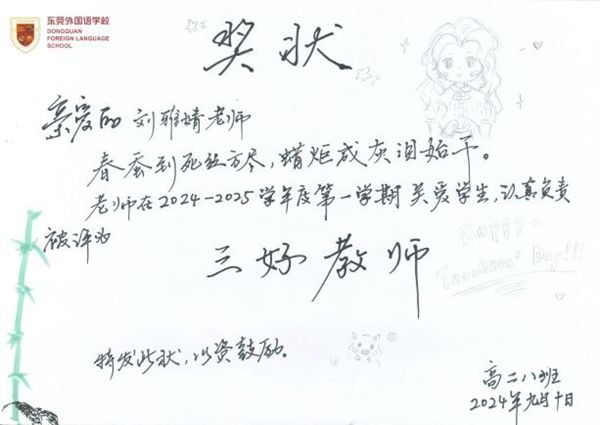 东莞外国语学校
DONGGUAN
FOREIGN LANGUAGE
SCHOOL
奖状
亲爱的 刘雅婧老师
春蚕到死丝方尽，蜡炬成灰泪始干。
老师在2024-2025学年度第一学期关爱学生，认真负责
被评为
三好教师
Happy
Teachers' Day!!!
特发此状，以资鼓励。
高二八班
2024年九月十日